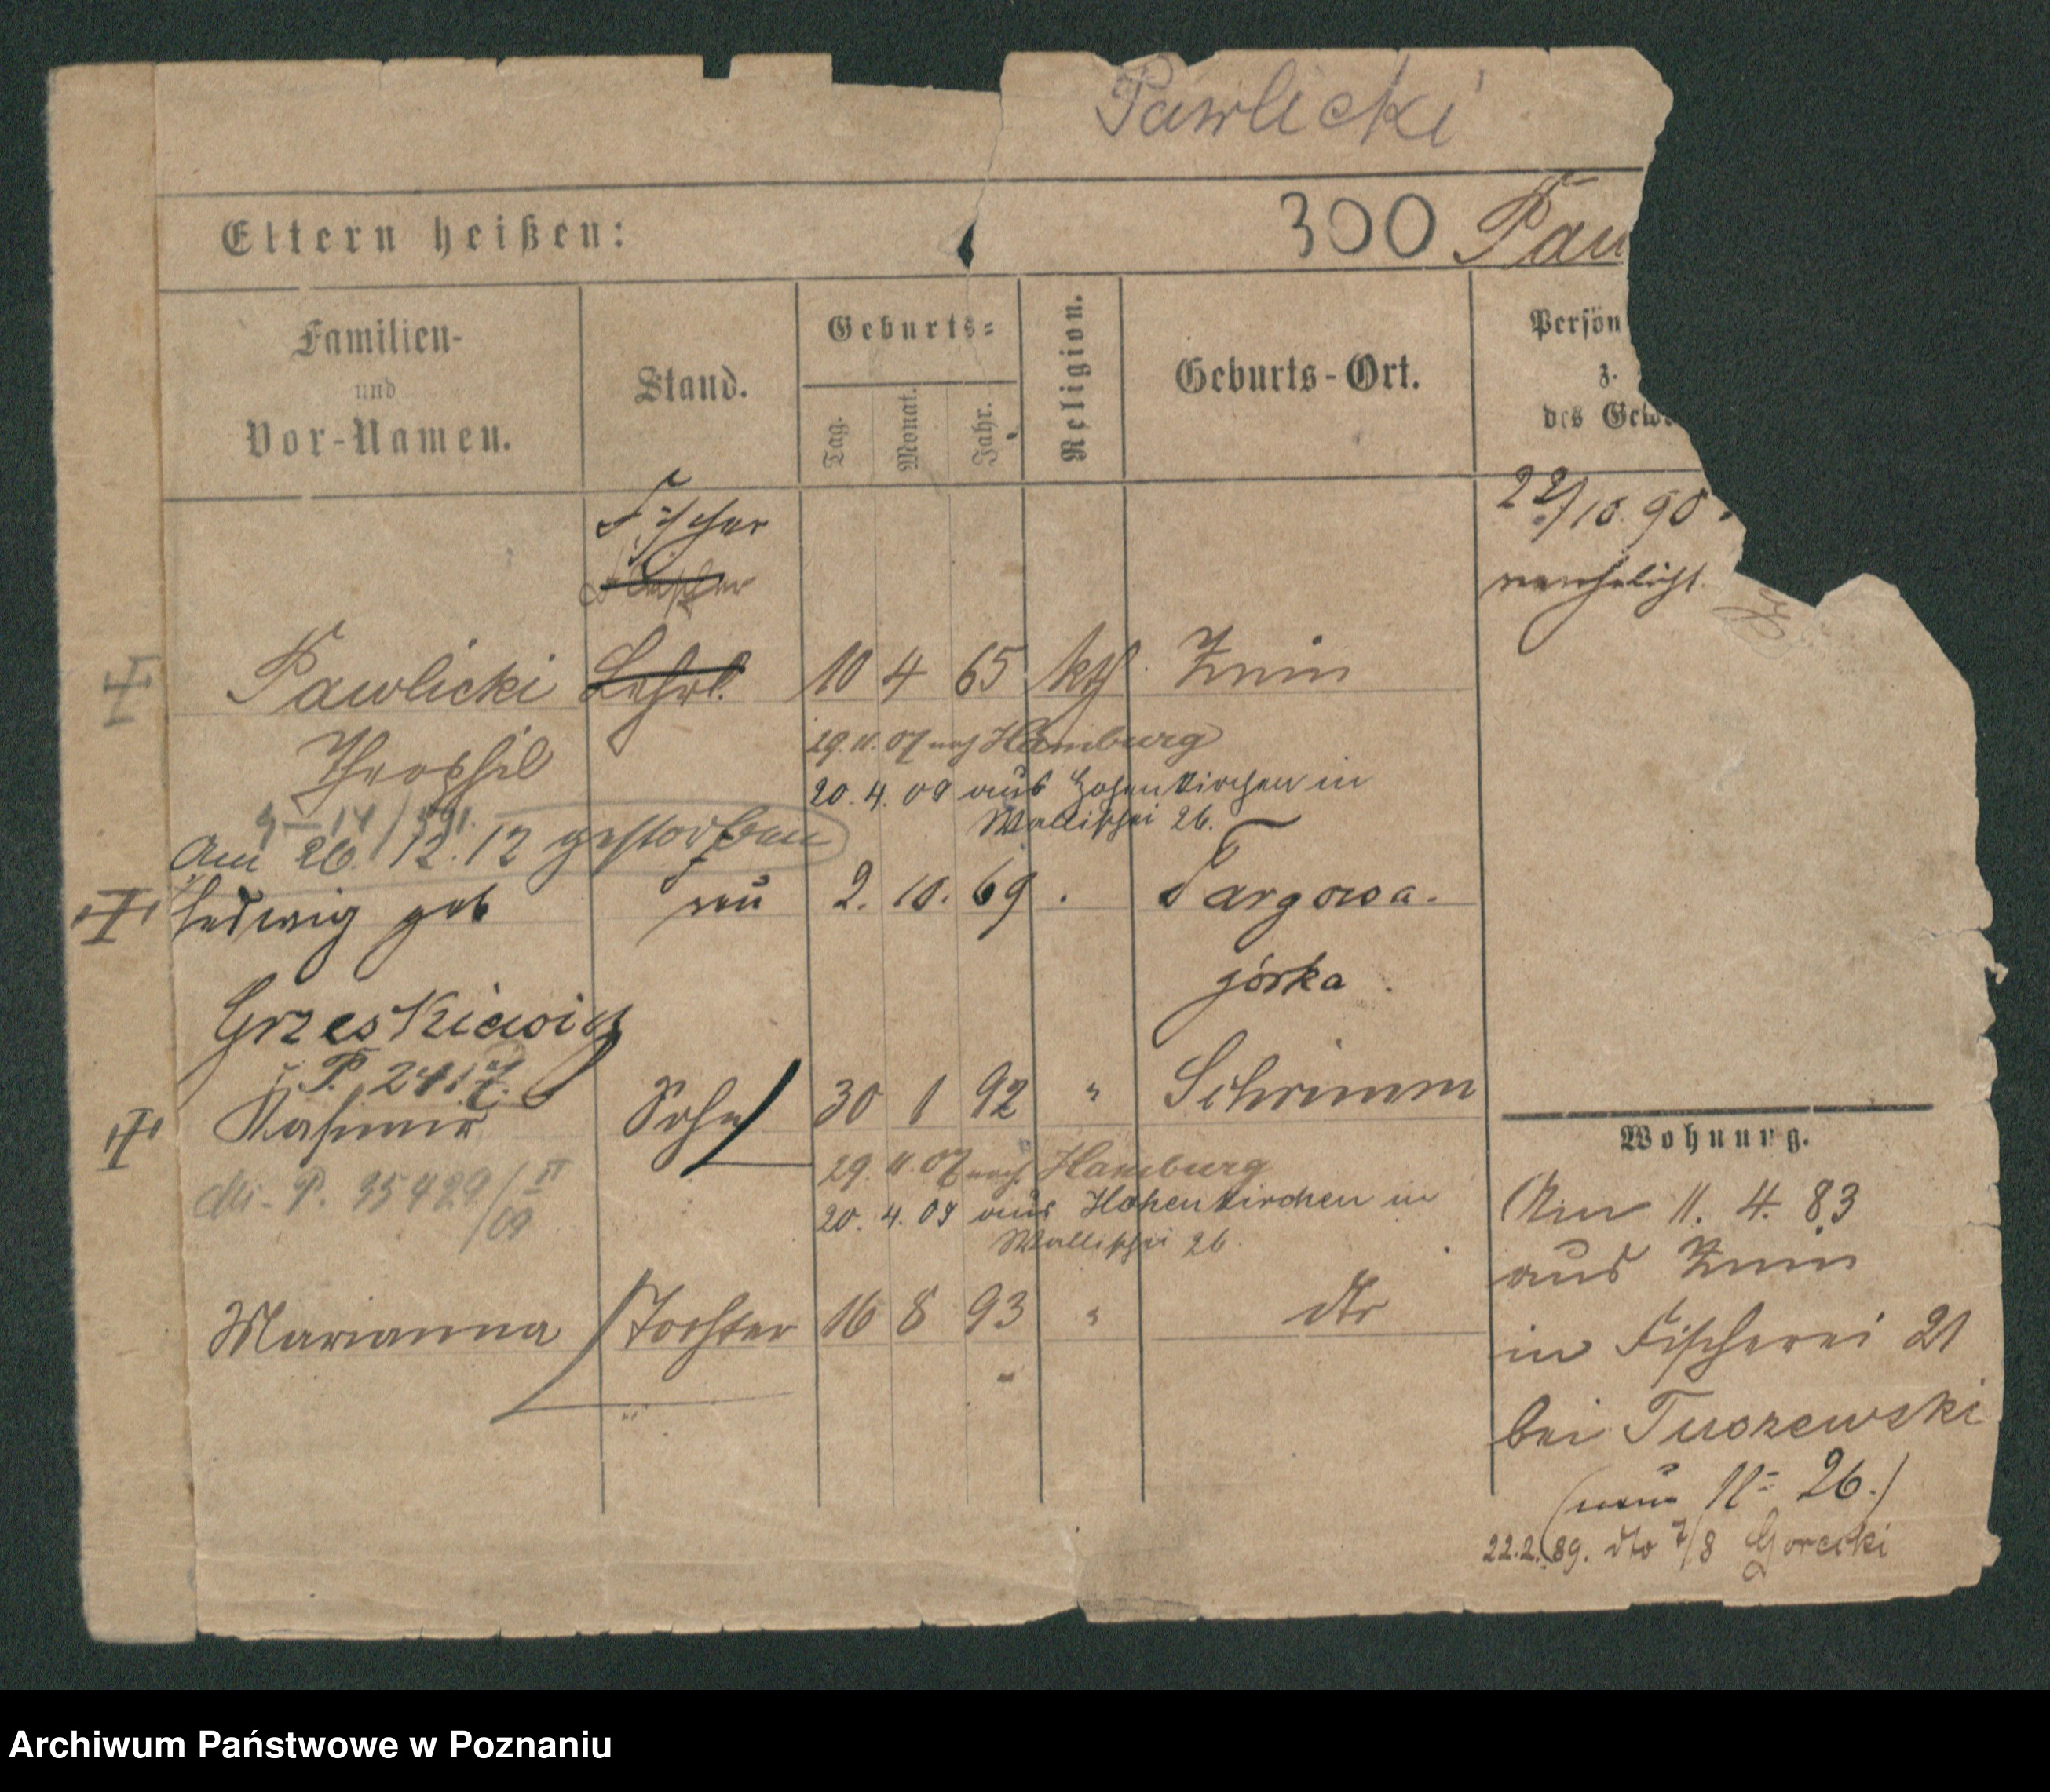 Pawlicki
Eltern heißen:
300 Paw
Familien-
und
Vor-Namen.
Stand.
Geburts-
Tag.
Monat.
Jahr.
Religion.
Geburts-Ort.
Persön
z.
des Gew
22/10.90.
verehelicht.
Pawlicki
Lehrl.
10 4 65 kth. Znin
Theophil
29.11.07 nach Hamburg
20.4.09 aus Hohenkirchen in
Wallischei 26.
Am 26.12.12 gestorben
Hedwig geb
2. 10. 69 Targowa.
górka.
Grzeskiewicz
Kasimir Sohn 30 1 92 " Schrimm
29.11.07 nach Hamburg
20.4.09 aus Hohenkirchen in
Wallischei 26.
Marianna Tochter 16 8 93 " dto
Wohnung.
11. 4. 83
aus Znin
in Fischerei 21
bei Tuszewski
(neue No 26.)
22.2.89. dto 7/8 Gorecki
Archiwum Państwowe w Poznaniu